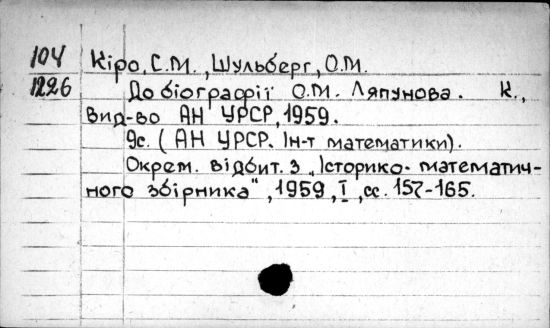 104 Кіро, С.М., Шульберг, О.М.
1226 До біографії О.М. Ляпунова. К.,
Вид-во АН УРСР, 1959.
9с. (АН УРСР. Ін-т математики).
Окрем. відбит. з „Історико-математич-
ного збірника", 1959, I, сс. 157-165.